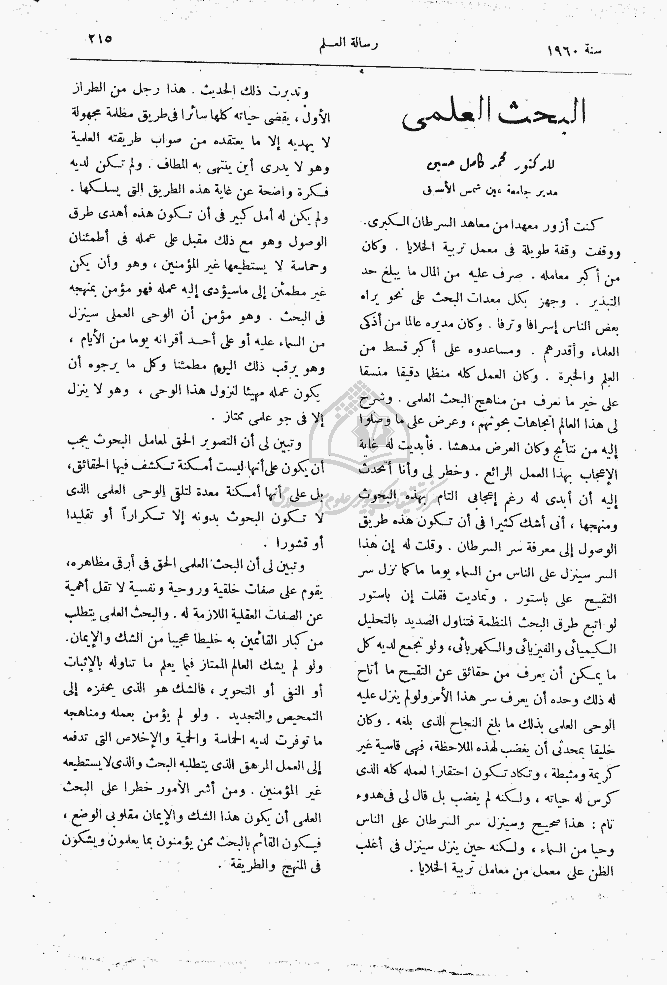 سنة ١٩٦٠
رسالة العلم
٢١٥
البحث العلمى
للدكتور محمد كامل حسين
مدير جامعة عين شمس الأسبق
كنت أزور معهدا من معاهد السرطان الكبرى.
ووقفت وقفة طويلة فى معمل تربية الخلايا . وكان
من أكبر معامله . صرف عليه من المال ما يبلغ حد
التبذير . وجهز بكل معدات البحث على نحو يراه
بعض الناس إسرافا وترفا . وكان مديره عالما من أذكى
العلماء وأقدرهم . ومساعدوه على أكبر قسط من
العلم والخبرة . وكان العمل كله منظما دقيقا منسقا
على خير ما نعرف من مناهج البحث العلمى . وشرح
لى هذا العالم اتجاهات بحوثهم ، وعرض على ما وصلوا
إليه من نتائج وكان العرض مدهشا . فأبديت له غاية
الإعجاب بهذا العمل الرائع . وخطر لى وأنا أتحدث
إليه أن أبدى له رغم إعجابى التام بهذه البحوث
ومنهجها ، أنى أشك كثيرا فى أن تكون هذه طريق
الوصول إلى معرفة سر السرطان . وقلت له إن هذا
السر سينزل على الناس من السماء يوما ما كما نزل سر
التقيح على باستور . وتماديت فقلت إن باستور
لو اتبع طرق البحث المنظمة فتناول الصديد بالتحليل
الكيميائى والفيزيائى والكهربائى، ولو تجمع لديه كل
ما يمكن أن يعرف من حقائق عن التقيح ما أتاح
له ذلك وحده أن يعرف سر هذا الأمر ولو لم ينزل عليه
الوحى العلمى بذلك ما بلغ النجاح الذى بلغه . وكان
خليقا بمحدثى أن يغضب لهذه الملاحظة، فهى قاسية غير
كريمة ومثبطة ، وتكاد تكون احتقارا لعمله كله الذى
كرس له حياته ، ولكنه لم يغضب بل قال لى فى هدوء
تام : هذا صحيح وسينزل سر السرطان على الناس
وحيا من السماء ، ولكنه حين ينزل سينزل فى أغلب
الظن على معمل من معامل تربية الخلايا .
وتدبرت ذلك الحديث . هذا رجل من الطراز
الأول ، يقضى حياته كلها سائرا فى طريق مظلمة مجهولة
لا يهديه إلا ما يعتقده من صواب طريقته العلمية
وهو لا يدرى أين ينتهى به المطاف . ولم تكن لديه
فكرة واضحة عن غاية هذه الطريق التى يسلكها .
ولم يكن له أمل كبير فى أن تكون هذه أهدى طرق
الوصول وهو مع ذلك مقبل على عمله فى أطمئنان
وحماسة لا يستطيعها غير المؤمنين ، وهو وأن يكن
غير مطمئن إلى ماسيؤدى إليه عمله فهو مؤمن بمنهجه
فى البحث . وهو مؤمن أن الوحى العملى سينزل
من السماء عليه أو على أحد أقرانه يوما من الأيام ،
وهو يرقب ذلك اليوم مطمئنا وكل ما يرجوه أن
يكون عمله مهيئا لنزول هذا الوحى ، وهو لا ينزل
إلا فى جو علمى ممتاز .
وتبين لى أن التصوير الحق لمعامل البحوث يجب
أن يكون على أنها ليست أمكنة تكشف فيها الحقائق،
بل على أنها أمكنة معدة لتلقى الوحى العلمى الذى
لا تكون البحوث بدونه إلا تكراراً أو تقليدا
أو قشورا .
وتبين لى أن البحث العلمى الحق فى أرقى مظاهره،
يقوم على صفات خلقية وروحية ونفسية لا تقل أهمية
عن الصفات العقلية اللازمة له . والبحث العلمى يتطلب
من كبار القائمين به خليطا عجيبا من الشك والإيمان.
ولو لم يشك العالم الممتاز فيما يعلم ما تناوله بالإثبات
أو النفى أو التحوير ، فالشك هو الذى يحفزه إلى
التمحيص والتجديد . ولو لم يؤمن بعمله ومناهجه
ما توفرت لديه الحماسة والحمية والإخلاص التى تدفعه
إلى العمل المرهق الذى يتطلبه البحث والذى لا يستطيعه
غير المؤمنين . ومن أشر الأمور خطرا على البحث
العلمى أن يكون هذا الشك والإيمان مقلوبى الوضع ،
فيكون القائم بالبحث ممن يؤمنون بما يعلمون ويشكون
فى المنهج والطريقة .